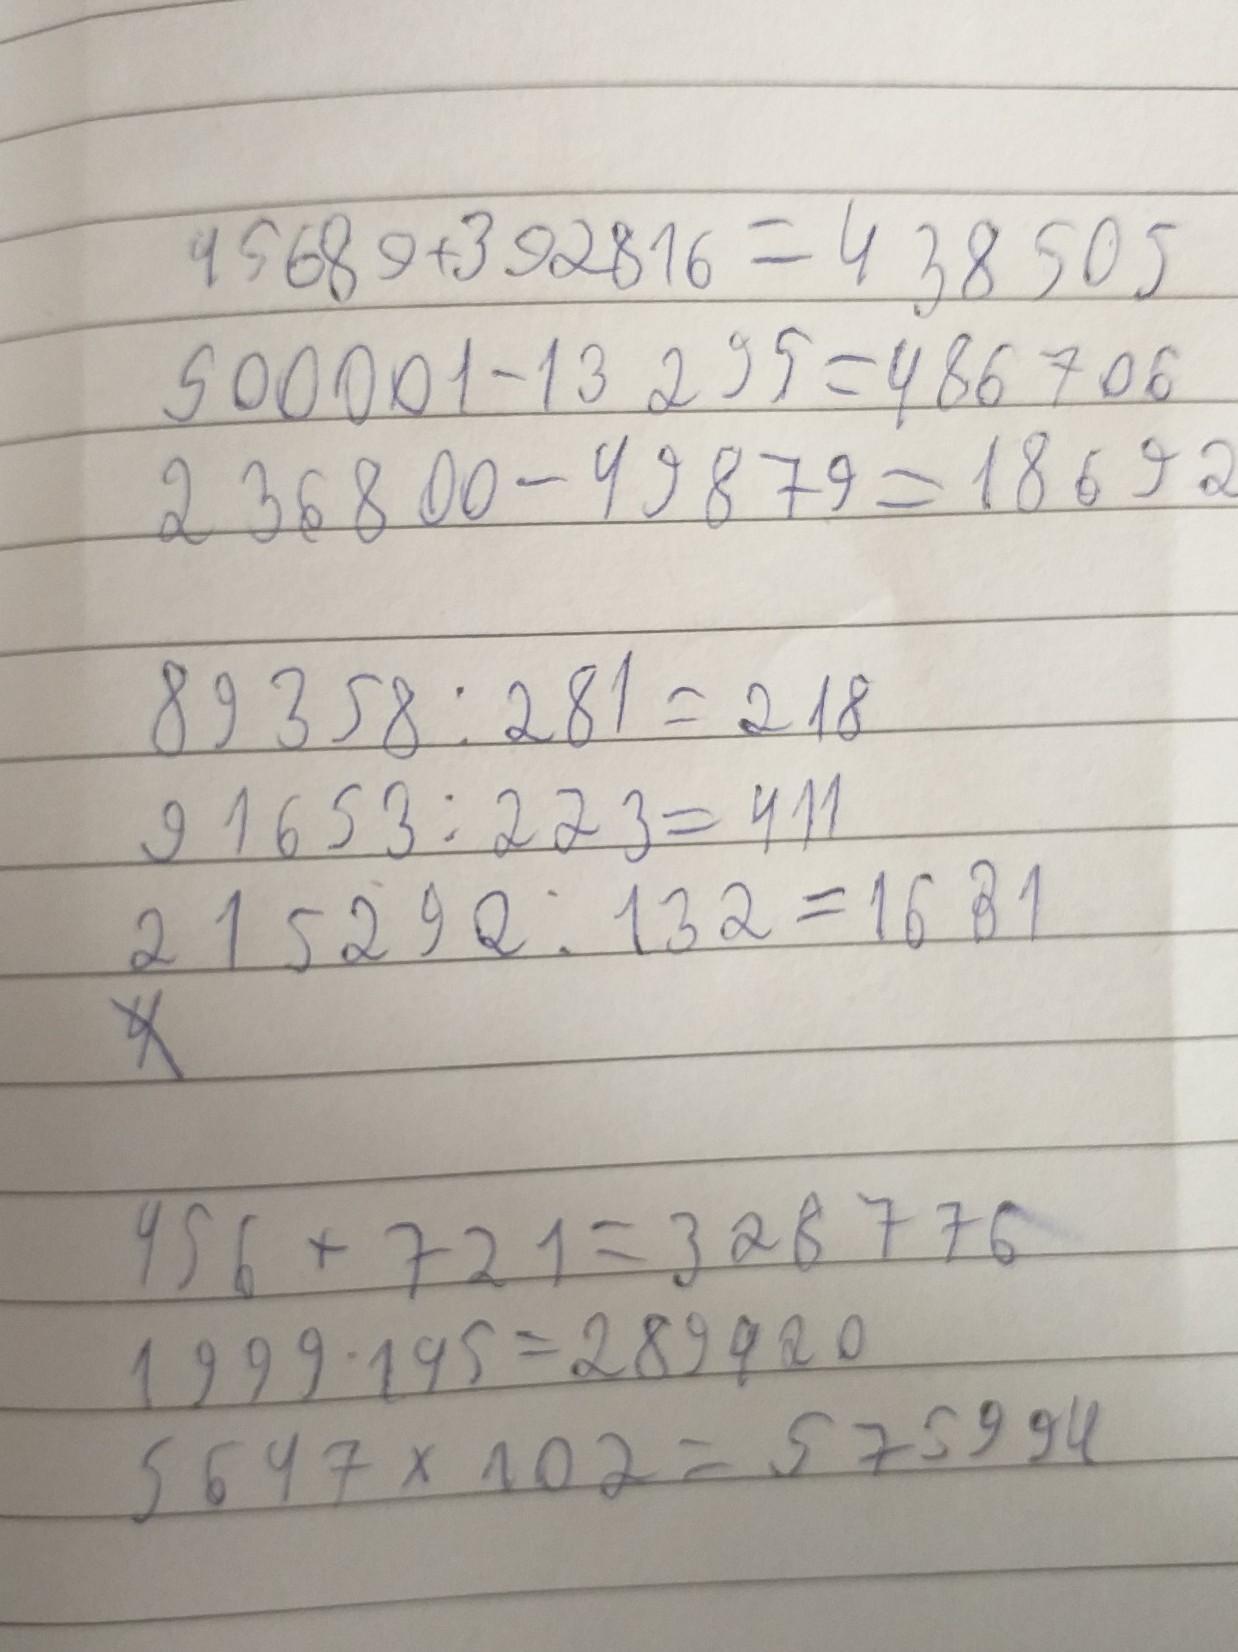 45689+392816=438505
500001-13295=486706
236800-49879=18692
89358:281=218
91653:223=411
215292:132=1631
456+721=328776
1999·145=289920
5647×102=575994